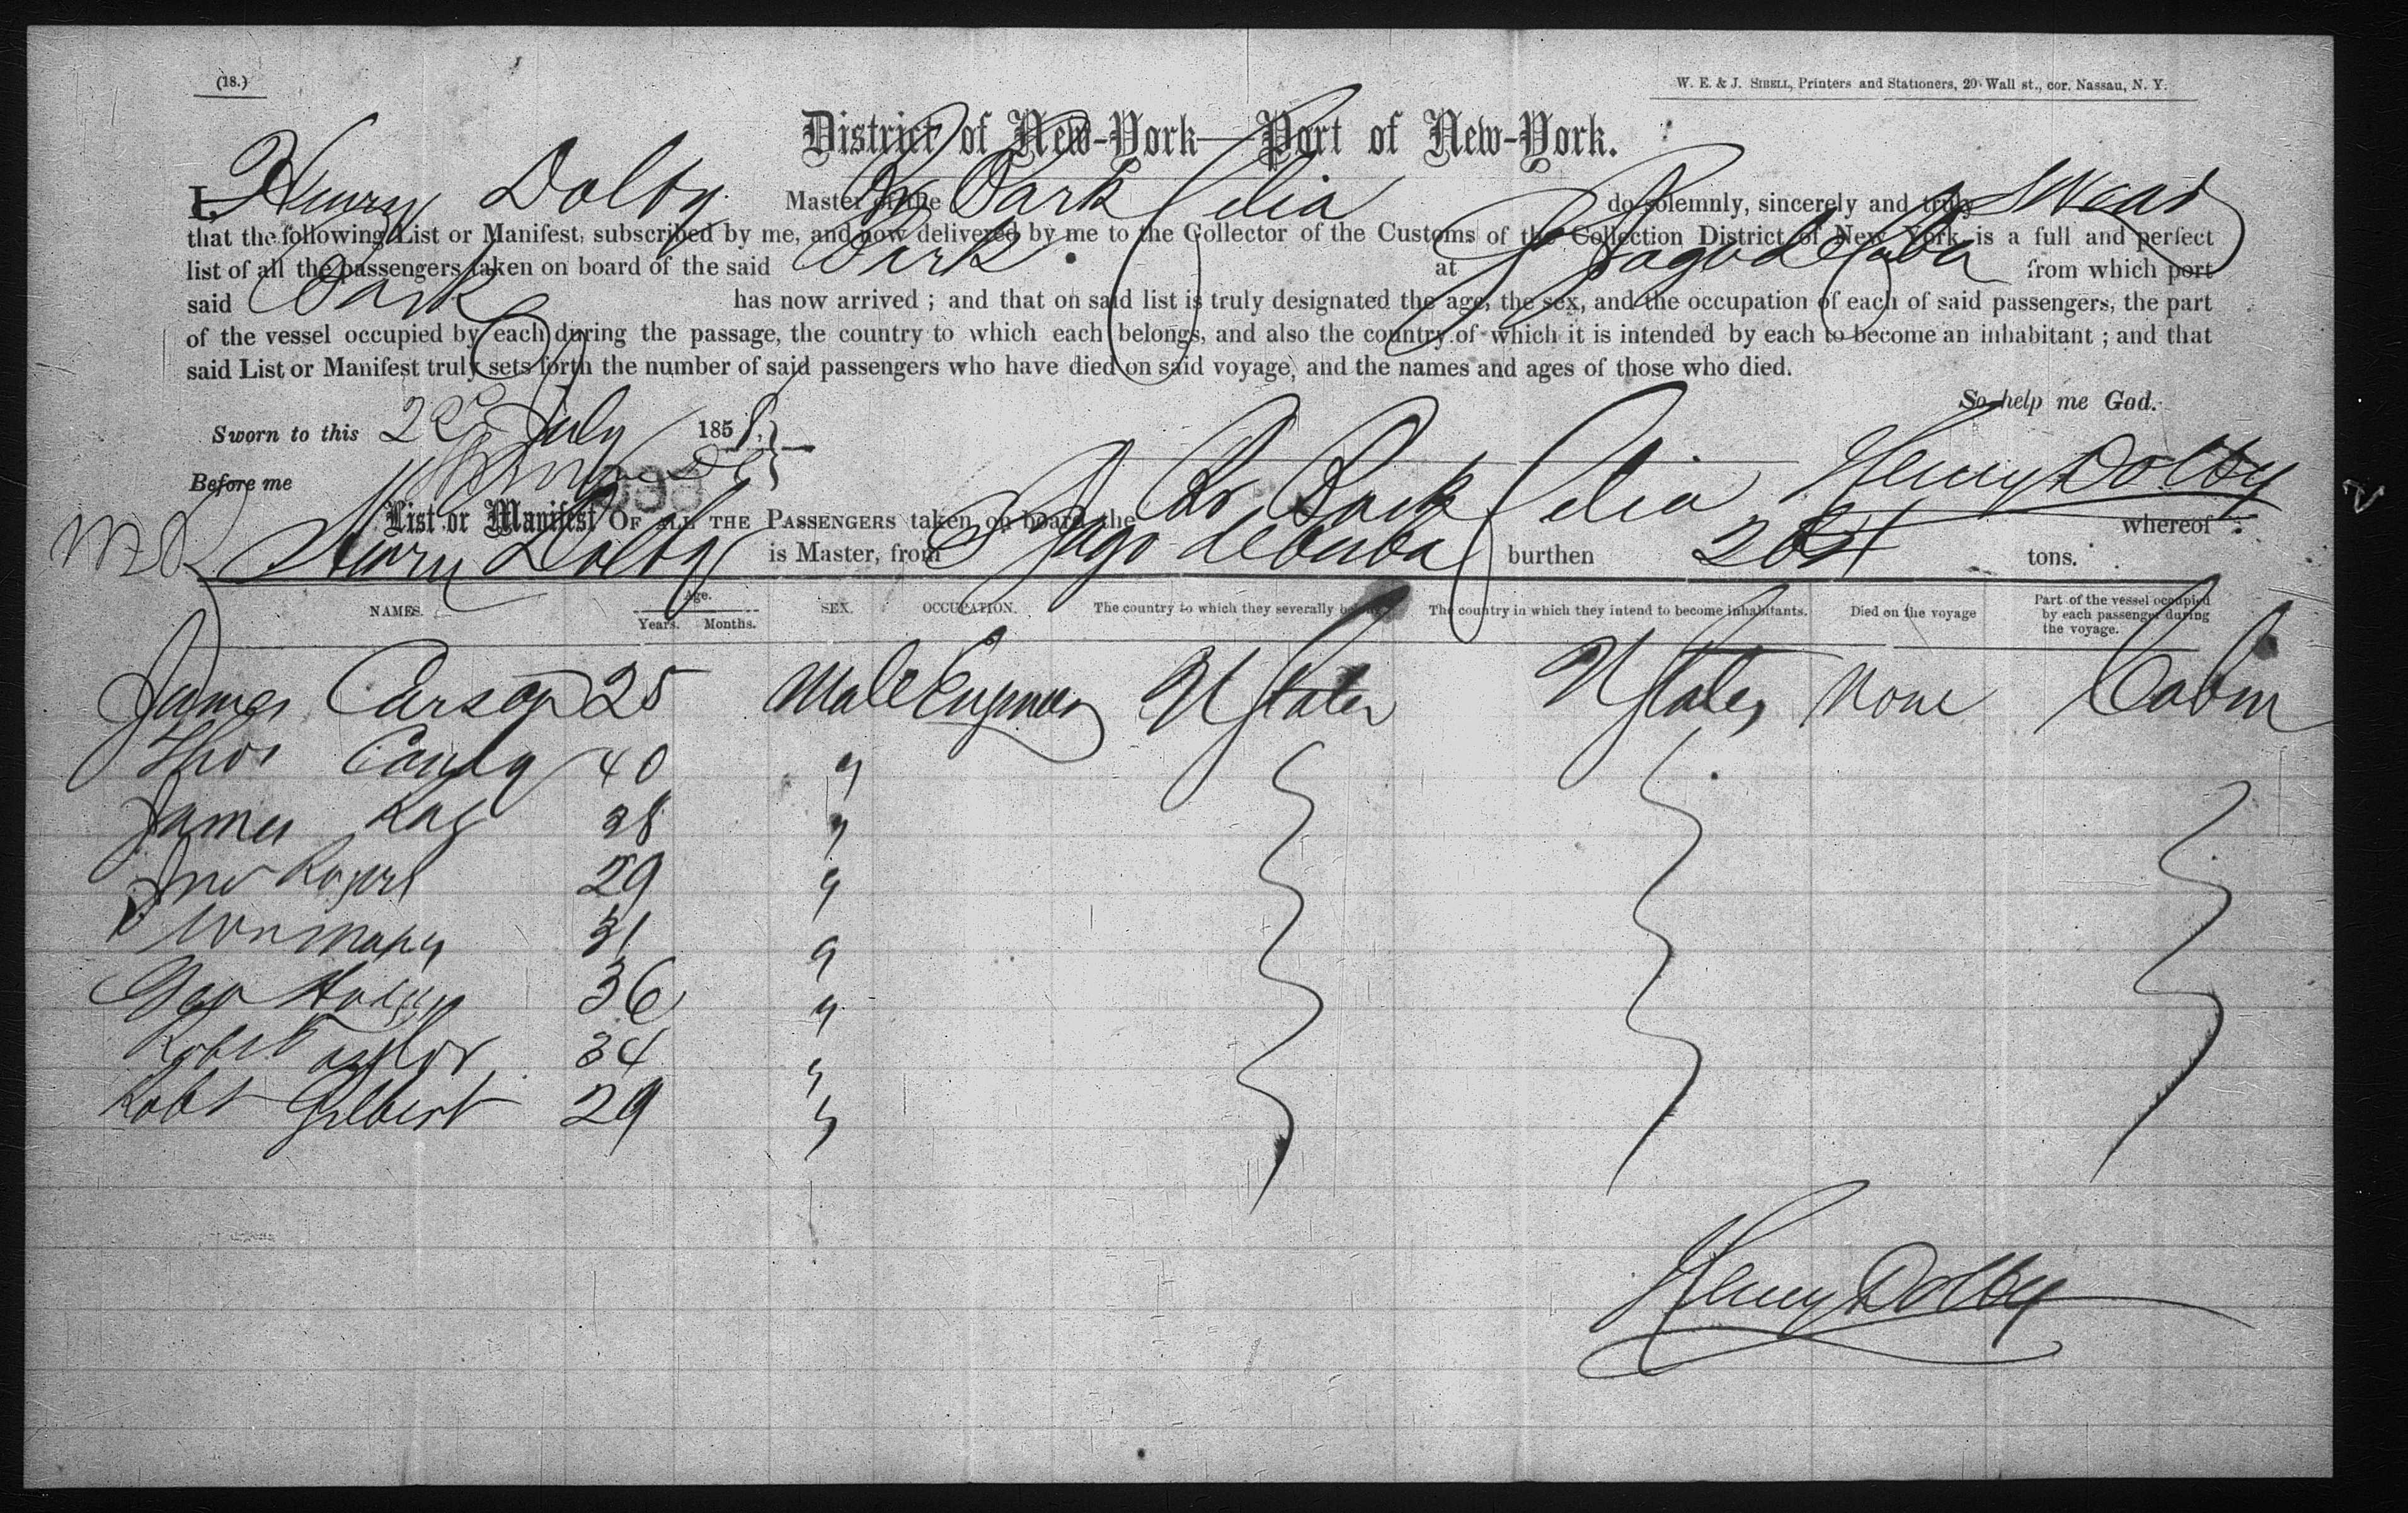 (18.)
W. E. & J. SIBELL, Printers and Stationers, 20 Wall st., cor. Nassau, N. Y.
District of New-York—Port of New-York.
I, Henry Dolby Master of the Br Bark Celia do solemnly, sincerely and truly swear
that the following List or Manifest, subscribed by me, and now delivered by me to the Collector of the Customs of the Collection District of New York, is a full and perfect
list of all the passengers taken on board of the said Bark at St Jago de Cuba from which port
said Bark has now arrived ; and that on said list is truly designated the age, the sex, and the occupation of each of said passengers, the part
of the vessel occupied by each during the passage, the country to which each belongs, and also the country of which it is intended by each to become an inhabitant ; and that
said List or Manifest truly sets forth the number of said passengers who have died on said voyage, and the names and ages of those who died.
So help me God.
Sworn to this July 1858,
Before me
Henry Dolby
List or Manifest OF ALL THE PASSENGERS taken on board the Br Bark Celia whereof
Henry Dolby is Master, from St Jago de Cuba burthen tons.
NAMES. Age. Years. Months. SEX. OCCUPATION. The country to which they severally belong. The country in which they intend to become inhabitants. Died on the voyage Part of the vessel occupied by each passenger during the voyage.
James Carson 25 Male Engineer U States U States None Cabin
Thos 40 "
James Kay 28 "
Jno Rogers 29 "
Wm 31 "
Geo 36 "
Robt Taylor 34 "
Robt Gilbert 29 "
Henry Dolby